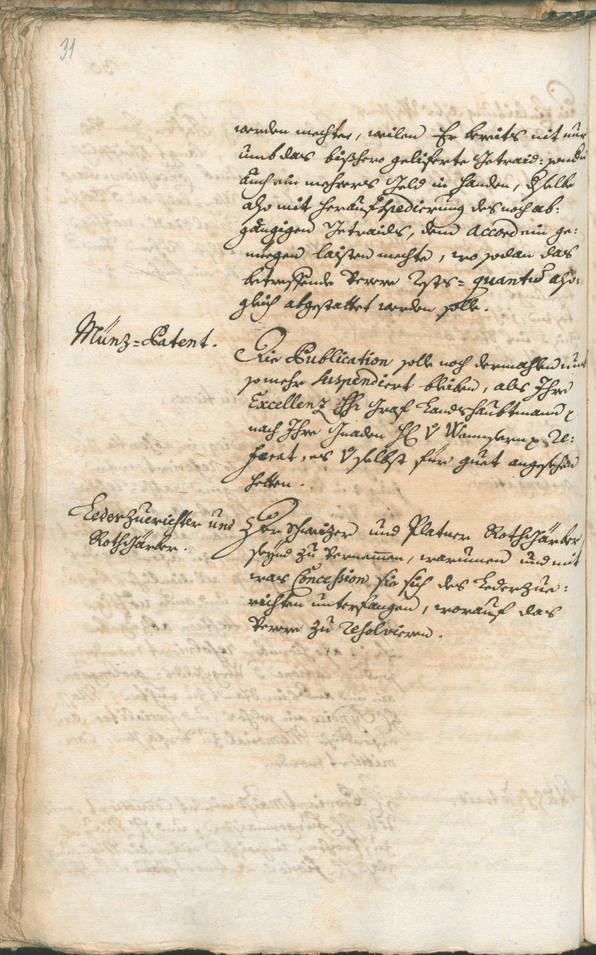 31
werden mechte, weilen Er bereits nit nur
umb das bishero geliferte Getraid: sonder
auch ein mehrers Geld in handen, dselbe
also mit heraufspedierung des noch ab:
gängigen Getraids, dem Accord ein ge:
niegen laisten mechte, wo sodan das
betreffende Verere Zohs= quantum also
gleich abgestattet werden solle.
Münz=Patent.
Die Publication solle noch dermahlen umb
so mehr suspendiert bleiben, als Ihre
Excellenz H: Graf Landshaubtmann
nach Ihre Gnaden H: v Re:
ferat, es selbst für guet angesehen
hetten.
Lederzuerichter und
Rothgärber.
Der Schweizer und Platner Rothgärber
seynd zu vernemmen, warumen und mit
was Concession sie sich des Lederzue:
richten unterfangen, worauf das
Verere zu resolvieren.